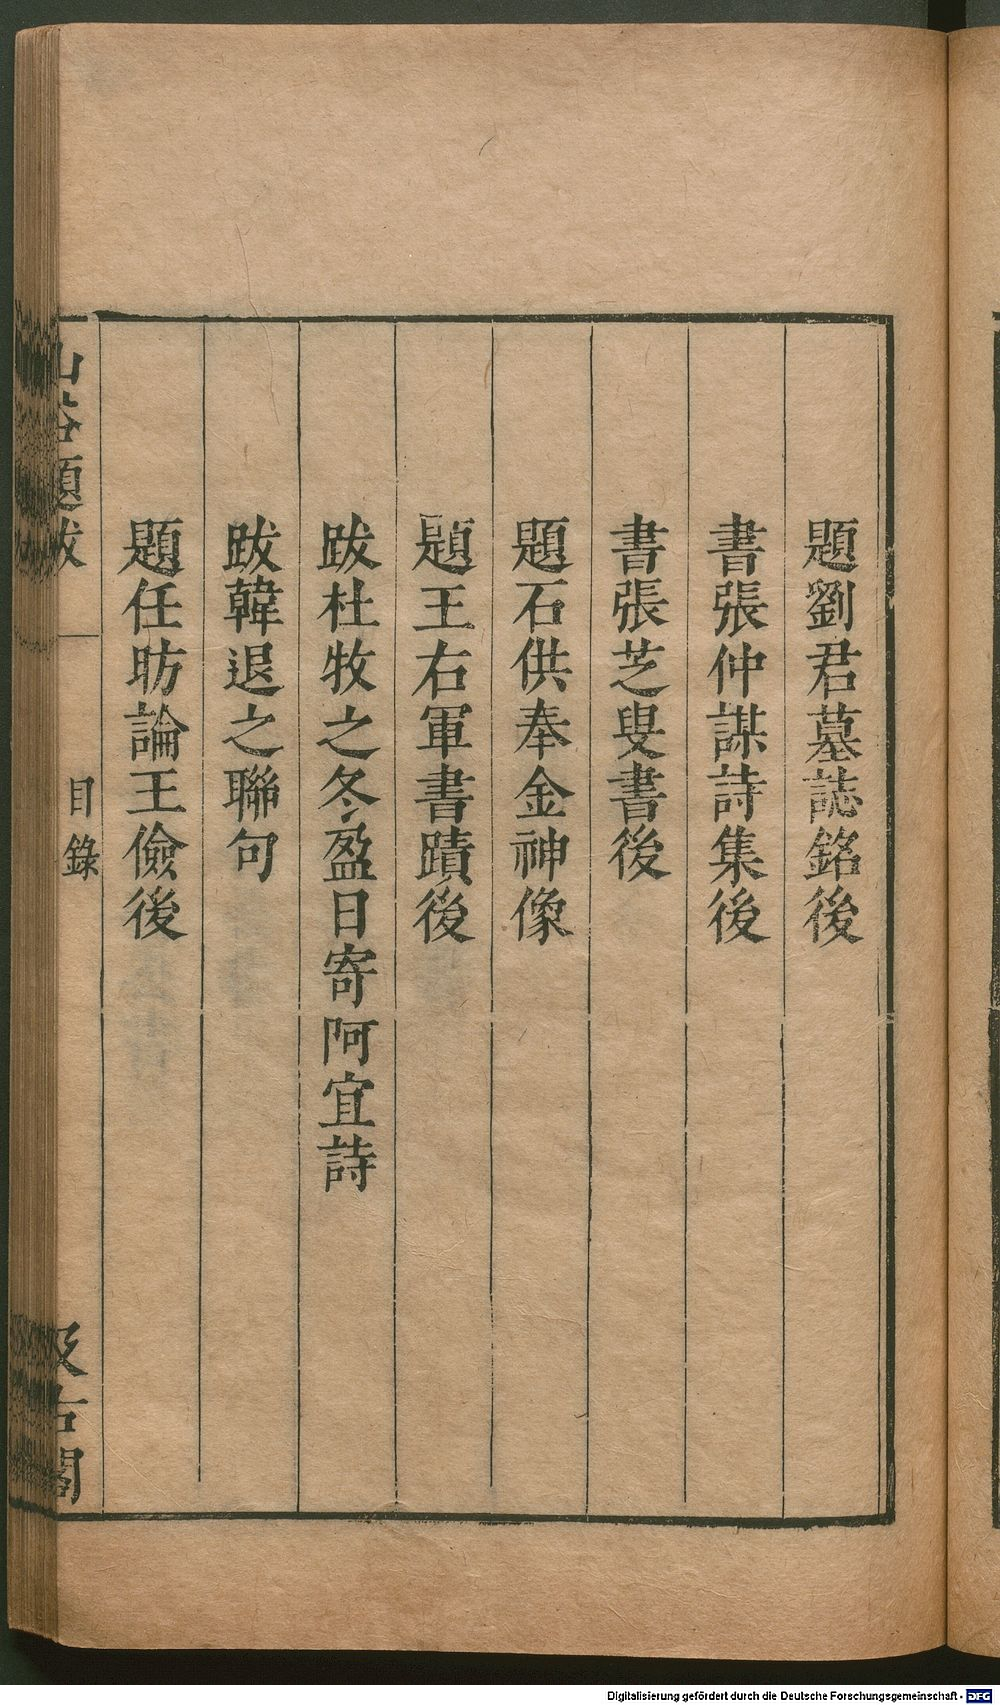 題劉君墓誌銘後
書張仲謀詩集後
書張芝叟書後
題石供奉金神像
題王右軍書蹟後
跋杜牧之冬盈日寄阿宜詩
跋韓退之聯句
題任昉論王儉後
山谷題跋
目錄
汲古閣
Digitalisierung gefördert durch die Deutsche Forschungsgemeinschaft - DFG